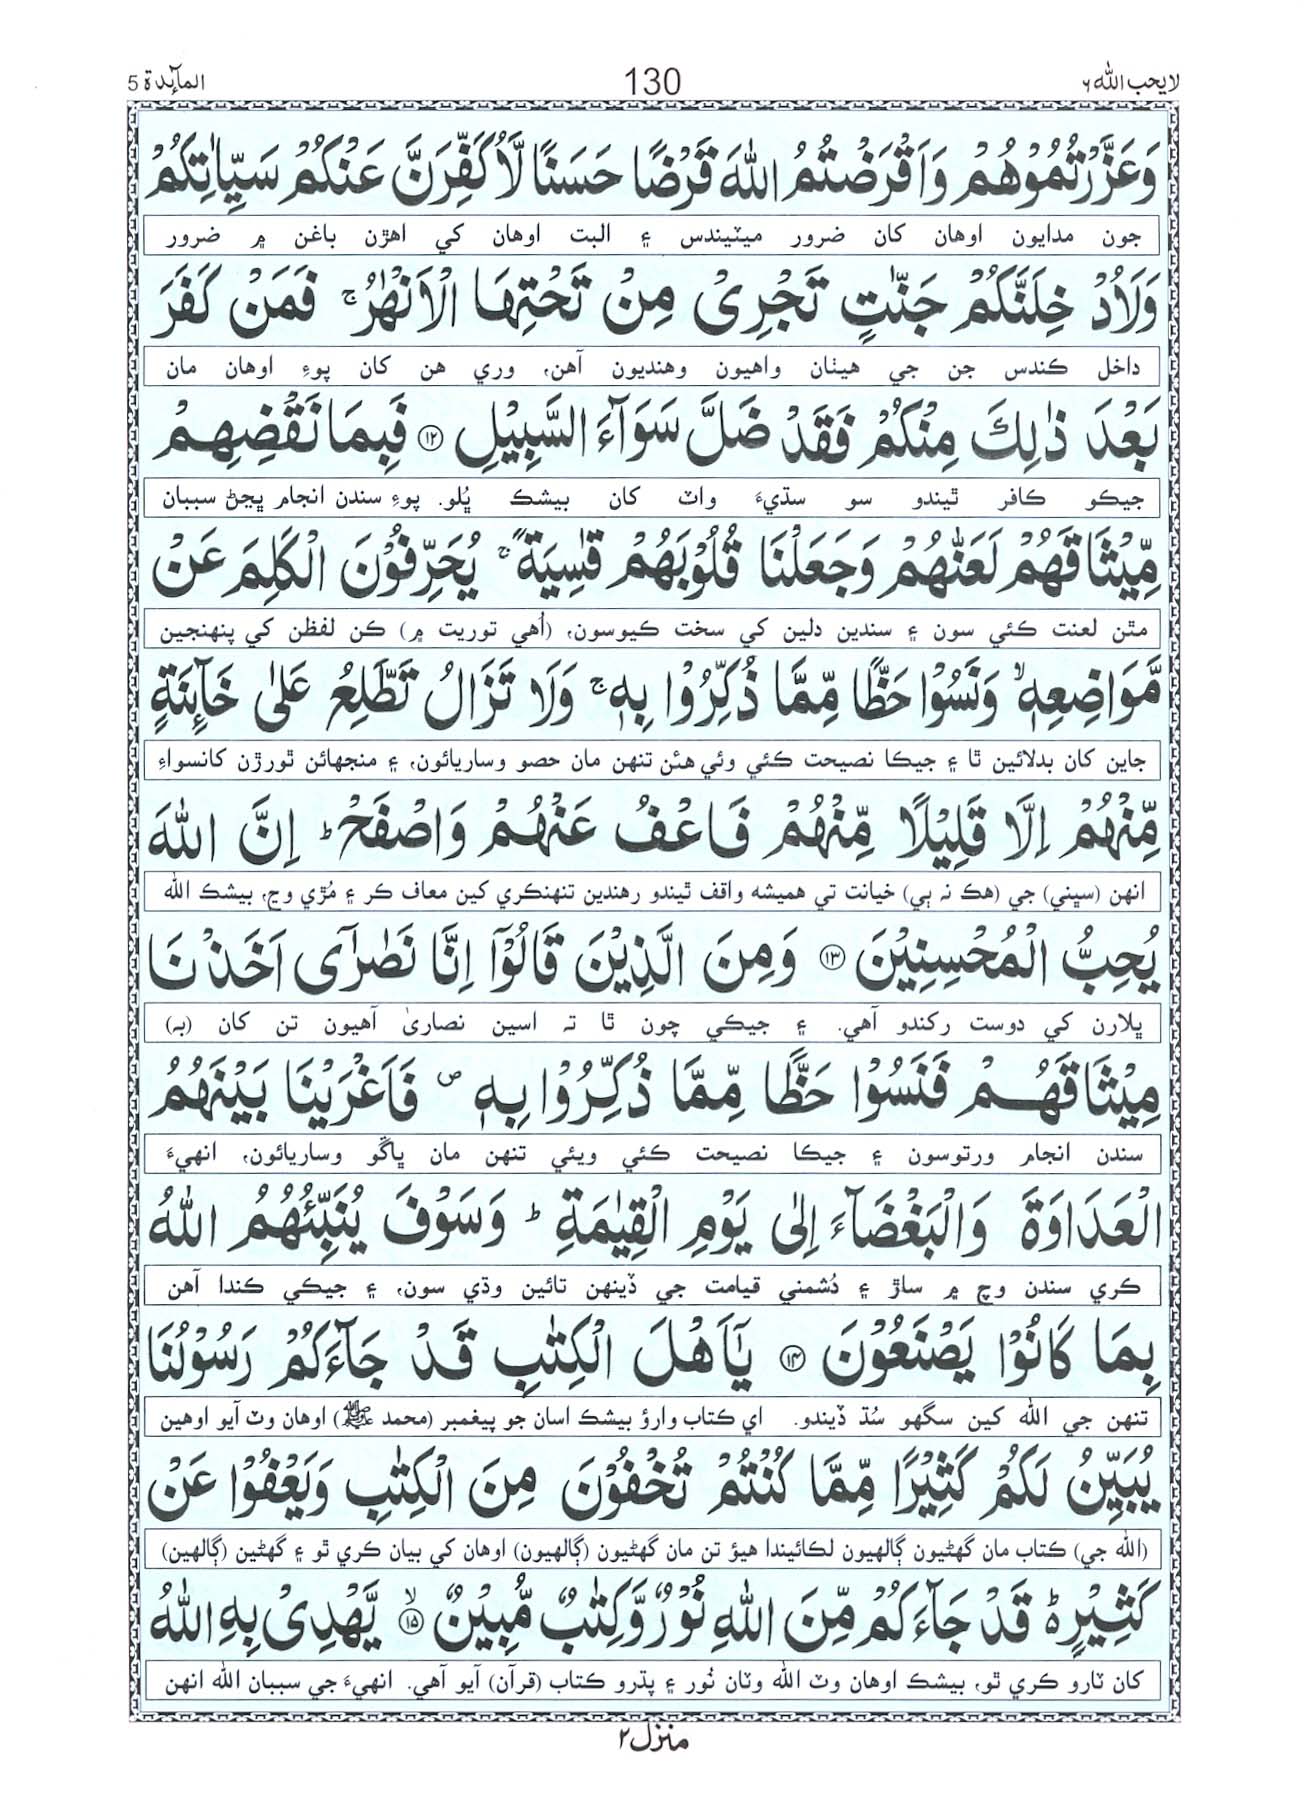 لا يحب الله ٦ 130 المآئدة 5
وَعَزَّرْتُمُوْهُمْ وَاَقْرَضْتُمُ اللّٰهَ قَرْضًا حَسَنًا لَّاُكَفِّرَنَّ عَنْكُمْ سَيِّاٰتِكُمْ
جون مدايون اوهان کان ضرور ميٽيندس ۽ البت اوهان کي اهڙن باغن ۾ ضرور
وَلَاُدْخِلَنَّكُمْ جَنّٰتٍ تَجْرِىْ مِنْ تَحْتِهَا الْاَنْهٰرُ ۚ فَمَنْ كَفَرَ
داخل ڪندس جن جي هيٺان واهيون وهنديون آهن، وري هن کان پوءِ اوهان مان
بَعْدَ ذٰلِكَ مِنْكُمْ فَقَدْ ضَلَّ سَوَآءَ السَّبِيْلِ ⑫ فَبِمَا نَقْضِهِمْ
جيڪو ڪافر ٿيندو سو سڌيءَ واٽ کان بيشڪ ڀُلو. پوءِ سندن انجام ڀڃڻ سببان
مِّيْثَاقَهُمْ لَعَنّٰهُمْ وَجَعَلْنَا قُلُوْبَهُمْ قٰسِيَةً ۚ يُحَرِّفُوْنَ الْكَلِمَ عَنْ
مٿن لعنت ڪئي سون ۽ سندين دلين کي سخت ڪيوسون، (اُهي توريت ۾) ڪن لفظن کي پنهنجين
مَّوَاضِعِهٖ ۙ وَنَسُوْا حَظًّا مِّمَّا ذُكِّرُوْا بِهٖ ۚ وَلَا تَزَالُ تَطَّلِعُ عَلٰى خَآئِنَةٍ
جاين کان بدلائين ٿا ۽ جيڪا نصيحت ڪئي وئي هئن تنهن مان حصو وساريائون، ۽ منجهائن ٿورڙن کانسواءِ
مِّنْهُمْ اِلَّا قَلِيْلًا مِّنْهُمْ فَاعْفُ عَنْهُمْ وَاصْفَحْ ؕ اِنَّ اللّٰهَ
انهن (سڀني) جي (هڪ نہ ٻي) خيانت تي هميشه واقف ٿيندو رهندين تنهنڪري کين معاف ڪر ۽ مُڙي وڃ، بيشڪ الله
يُحِبُّ الْمُحْسِنِيْنَ ⑬ وَمِنَ الَّذِيْنَ قَالُوْٓا اِنَّا نَصٰرٰٓى اَخَذْنَا
ڀلارن کي دوست رکندو آهي. ۽ جيڪي چون ٿا تہ اسين نصاريٰ آهيون تن کان (بہ)
مِيْثَاقَهُمْ فَنَسُوْا حَظًّا مِّمَّا ذُكِّرُوْا بِهٖ ۪ فَاَغْرَيْنَا بَيْنَهُمُ
سندن انجام ورتوسون ۽ جيڪا نصيحت ڪئي ويئي تنهن مان ڀاڱو وساريائون، انهيءَ
الْعَدَاوَةَ وَالْبَغْضَآءَ اِلٰى يَوْمِ الْقِيٰمَةِ ؕ وَسَوْفَ يُنَبِّئُهُمُ اللّٰهُ
ڪري سندن وچ ۾ ساڙ ۽ دُشمني قيامت جي ڏينهن تائين وڌي سون، ۽ جيڪي ڪندا آهن
بِمَا كَانُوْا يَصْنَعُوْنَ ⑭ يٰٓاَهْلَ الْكِتٰبِ قَدْ جَآءَكُمْ رَسُوْلُنَا
تنهن جي الله کين سگهو سُڌ ڏيندو. اي ڪتاب وارؤ بيشڪ اسان جو پيغمبر (محمد ﷺ) اوهان وٽ آيو اوهين
يُبَيِّنُ لَكُمْ كَثِيْرًا مِّمَّا كُنْتُمْ تُخْفُوْنَ مِنَ الْكِتٰبِ وَيَعْفُوْا عَنْ
(الله جي) ڪتاب مان گهڻيون ڳالهيون لڪائيندا هيؤ تن مان گهڻيون (ڳالهيون) اوهان کي بيان ڪري ٿو ۽ گهڻين (ڳالهين)
كَثِيْرٍ ؕ قَدْ جَآءَكُمْ مِّنَ اللّٰهِ نُوْرٌ وَّكِتٰبٌ مُّبِيْنٌ ۙ⑮ يَّهْدِىْ بِهِ اللّٰهُ
کان ٽارو ڪري ٿو، بيشڪ اوهان وٽ الله وٽان نُور ۽ پڌرو ڪتاب (قرآن) آيو آهي. انهيءَ جي سببان الله انهن
منزل ٢